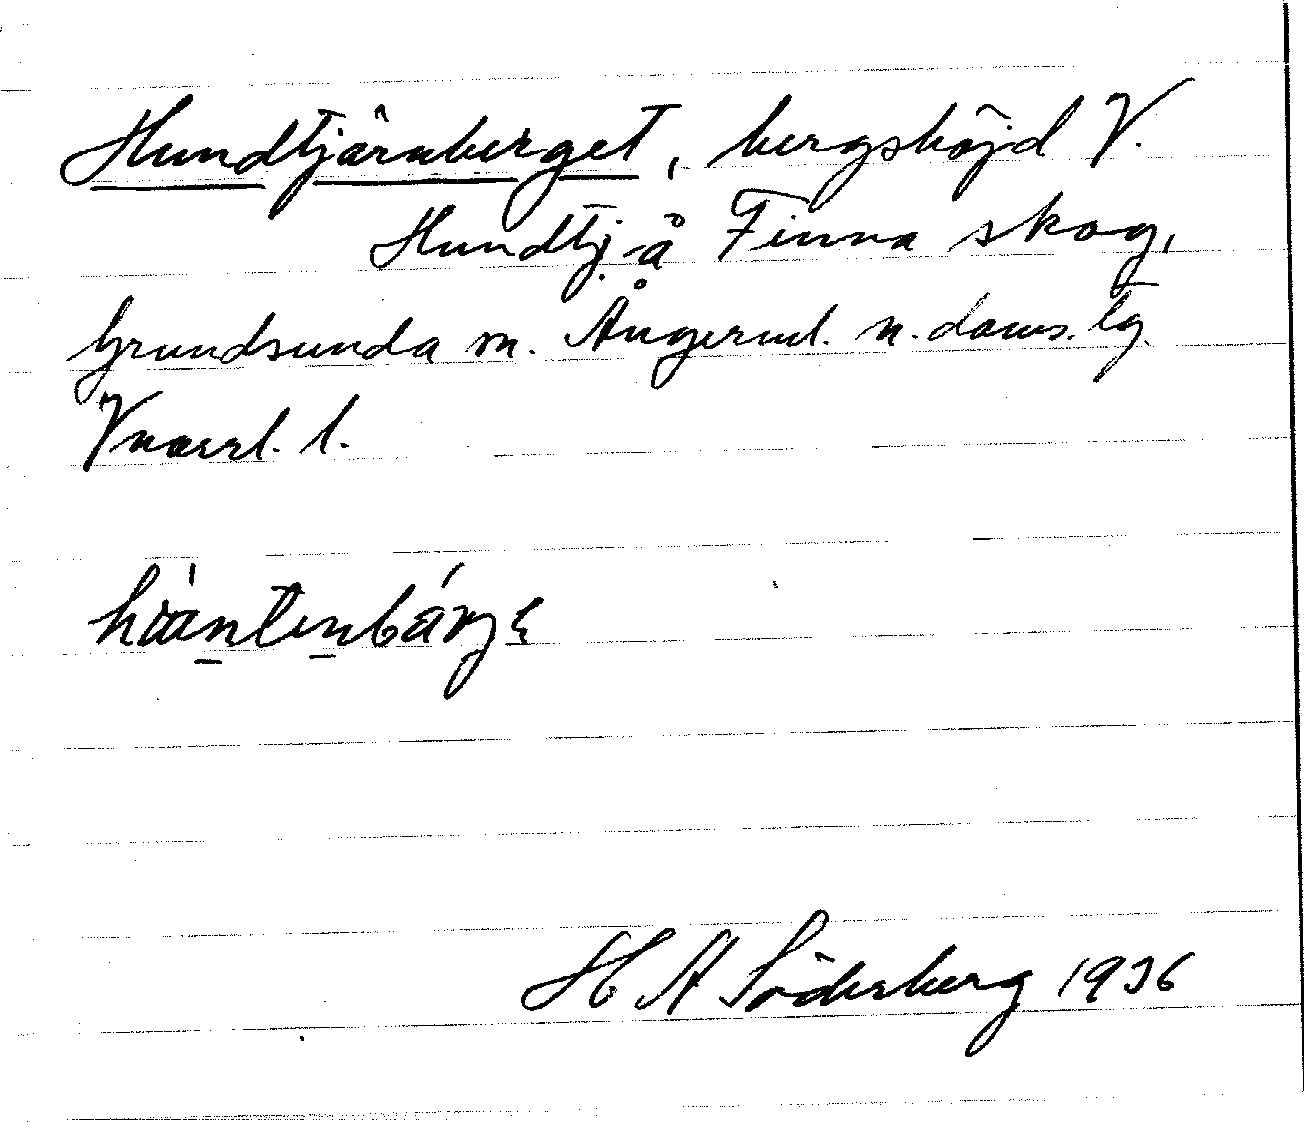 Hundtjärnberget, bergshöjd V.
Hundtj. å Finna skog,
Grundsunda sn. Ångerml. n. doms. tg
Vnorrl. l.
H A Söderberg 1936